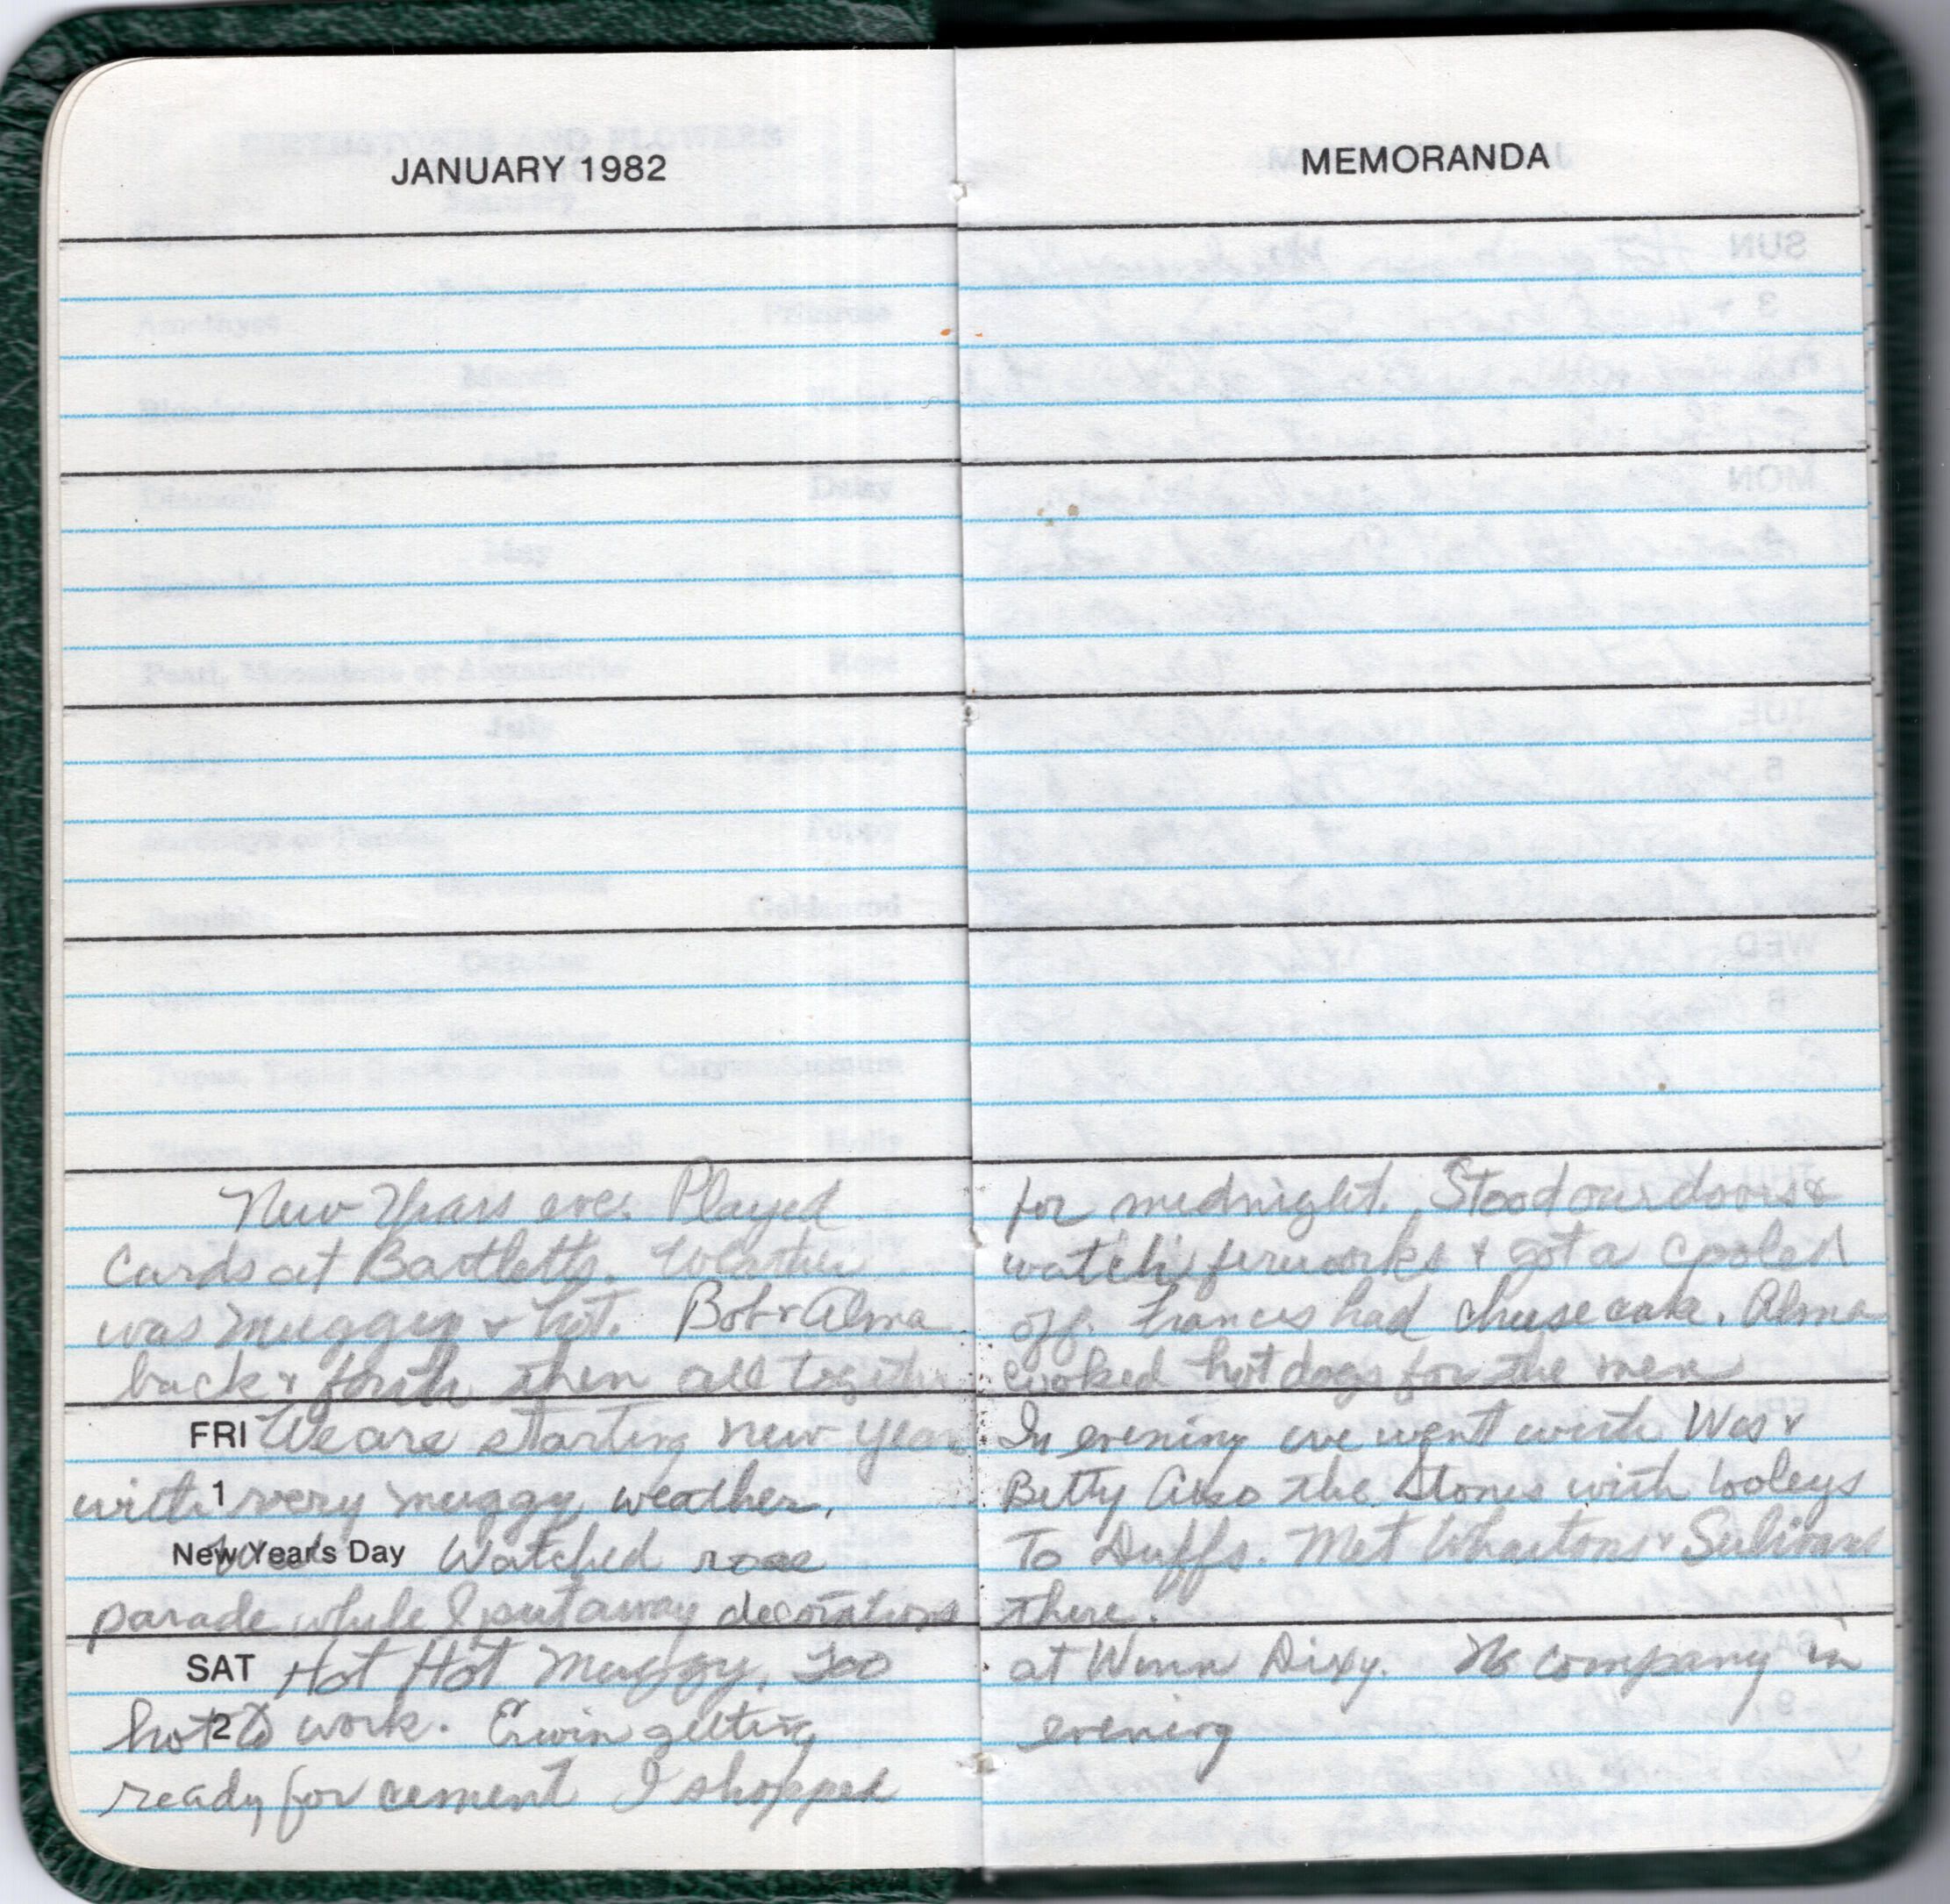 JANUARY 1982
New Years eve. Played
Cards at Bartletts. Weather
was muggy & hot. Bob & Alma
back & forth then all together
FRI We are starting new year
with 1 very muggy weather.
New Year's Day Watched rose
parade while I put away decorations
SAT Hot Hot Muggy. Too
hot 2 to work. Erwin getting
ready for cement I shopped
MEMORANDA
for midnight. Stood our doors &
watch fireworks & got a cooled
off. Frances had cheese cake. Alma
cooked hot dogs for the men
In evening we went with Wes &
Betty Also the Stones with Wooleys
To Duffs. Met Whartons & Sulivans
there.
at Winn Dixy. No company in
evening